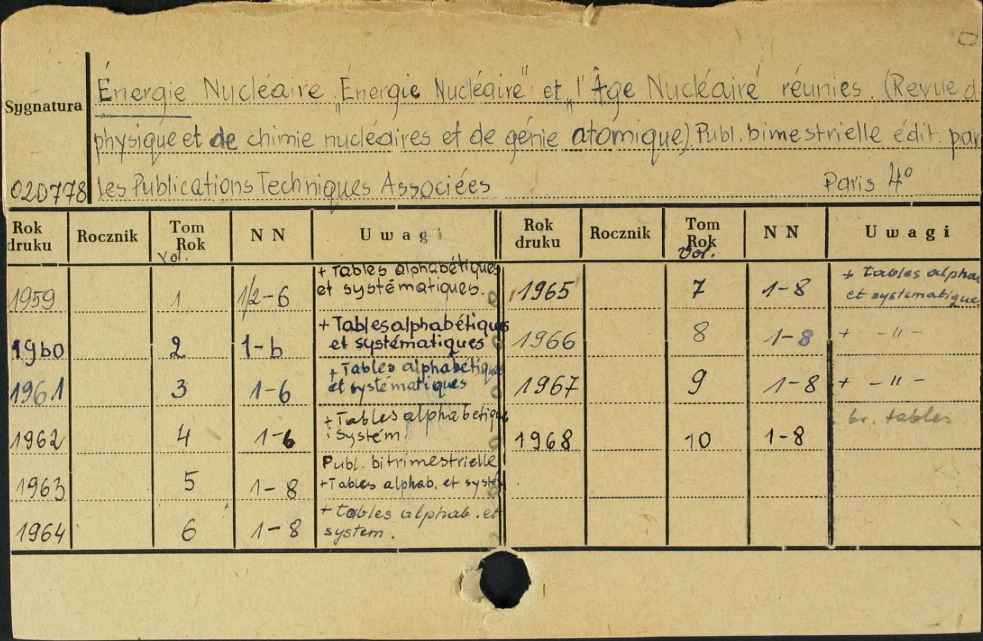 Énergie Nucléaire „Énergie Nucléaire" et „l'Âge Nucléaire" réunies. (Revue d
Sygnatura
physique et de chimie nucléaires et de génie atomique) Publ. bimestrielle édit. par
02D778 les Publications Techniques Associées Paris 4°
Rok druku Rocznik Tom Rok Vol. N N Uwagi Rok druku Rocznik Tom Rok Vol. N N Uwagi
1959 1 1/2-6 + Tables alphabétiques et systématiques. 1965 7 1-8 + tables alpha et systematique
1960 2 1-6 + Tables alphabétiques et systématiques 1966 8 1-8 + - " -
1961 3 1-6 + Tables alphabétiques et systématiques 1967 9 1-8 + - " -
1962 4 1-6 + Tables alphabetique i System. 1968 10 1-8 br. tables
1963 5 1-8 Publ. bitrimestrielle + Tables alphab. et syst
1964 6 1-8 + tables alphab. et system.